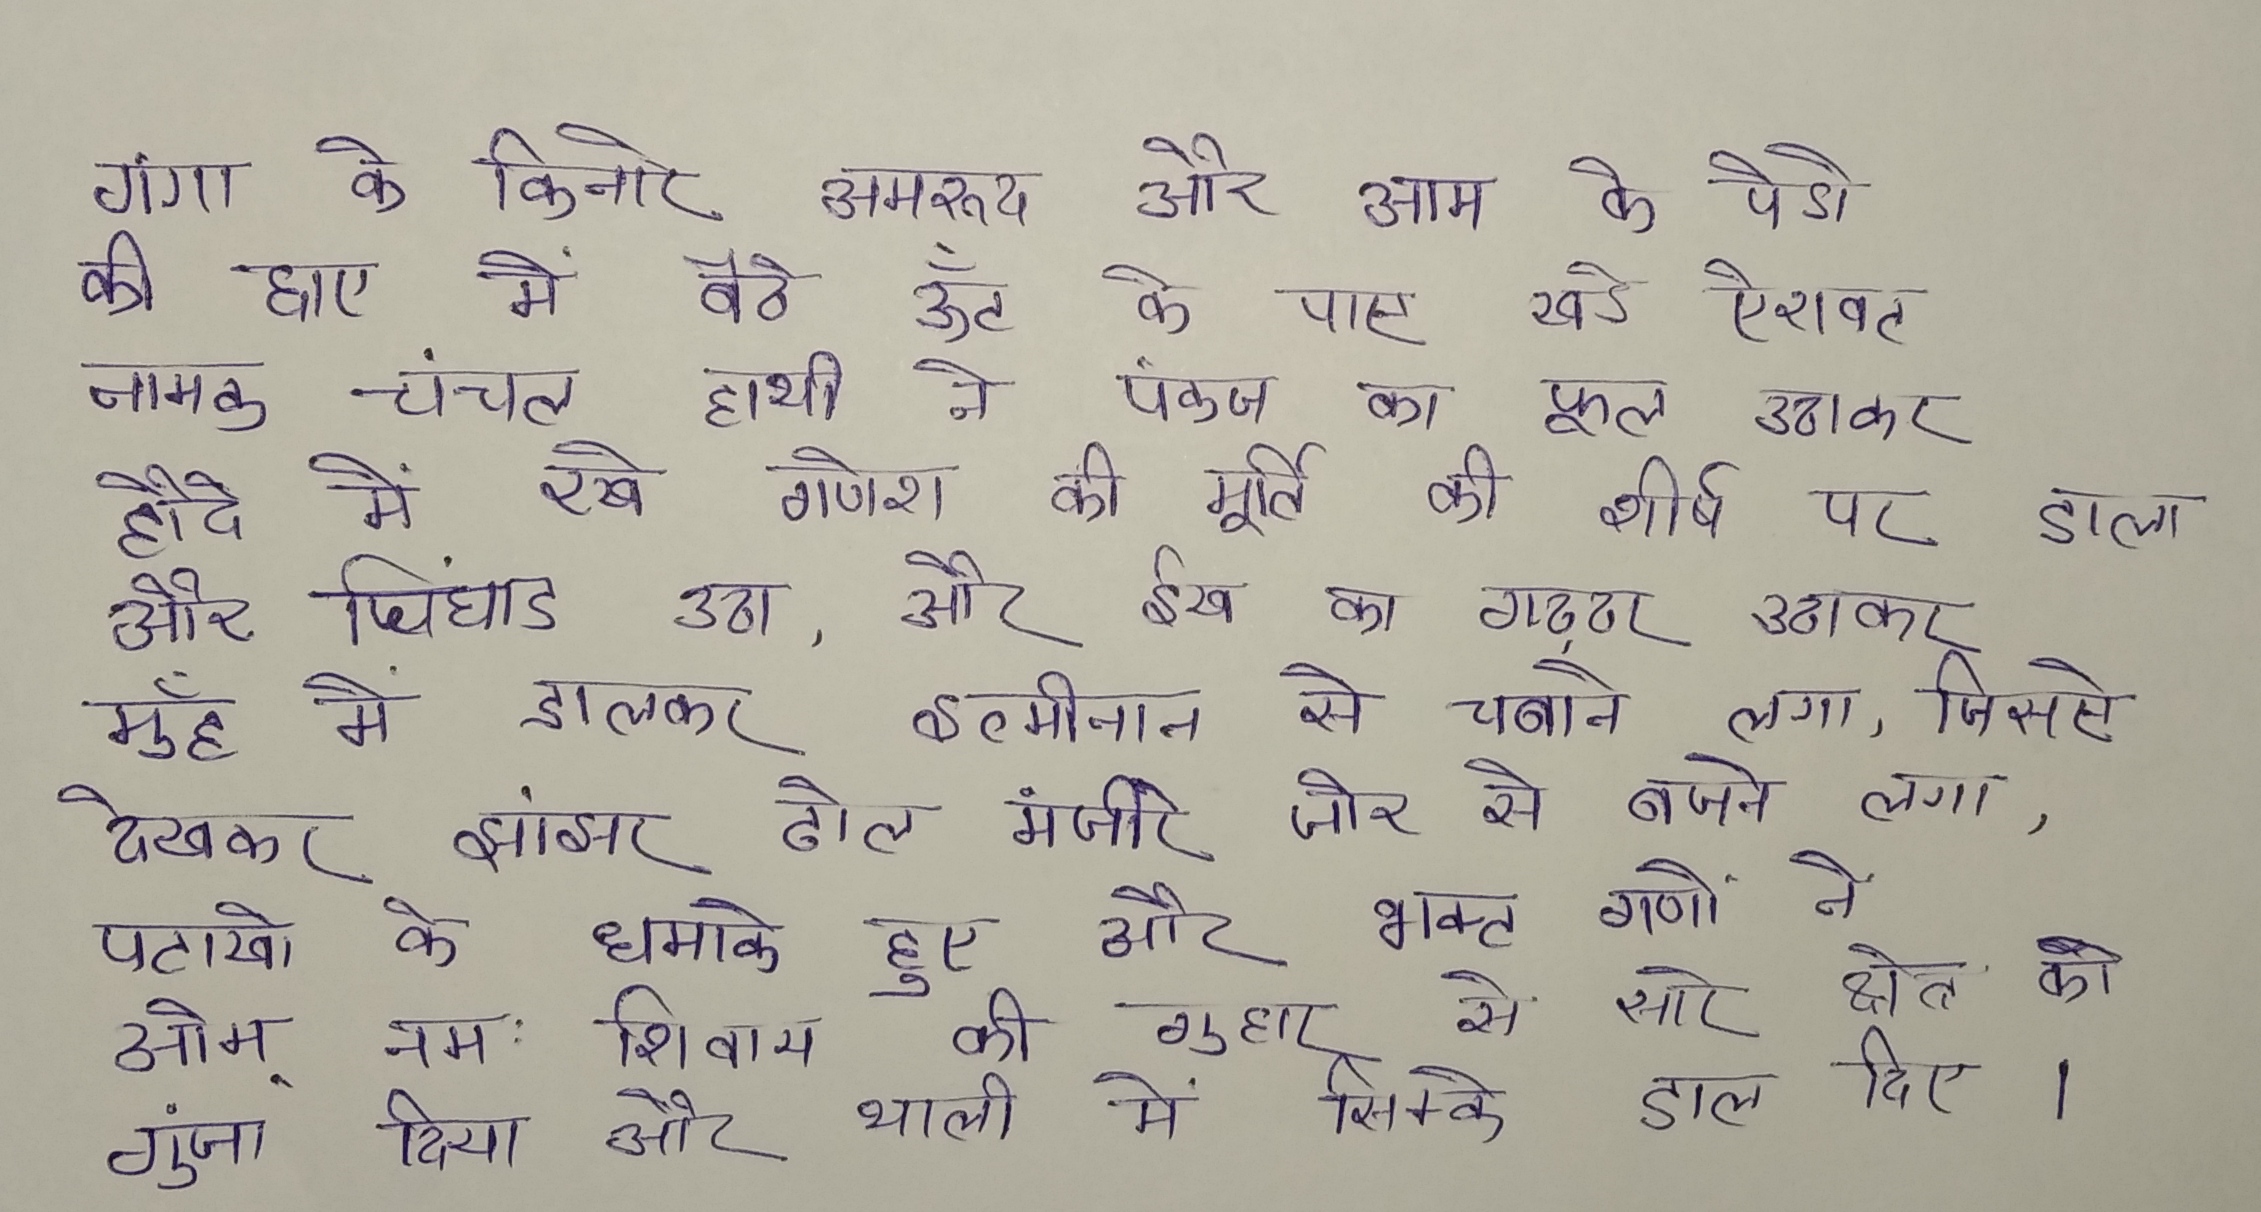 गंगा के किनारे अमरूद और आम के पेडो
की छाए में बैठे ऊँट के पास खडे ऐरावत
नामक चंचल हाथी ने पंकज का फूल उठाकर
हौदे में रखे गणेश की मूर्ति की शीर्ष पर डाला
और चिंघाड उठा, और ईख का गट्ठर उठाकर
मुँह में डालकर इत्मीनान से चबाने लगा, जिससे
देखकर झांझर ढोल मंजीरे जोर से बजने लगा,
पटाखो के धमाके हुए और भक्त गणों ने
ओम् नमः शिवाय की गुहार से सारे क्षेत्र को
गुंजा दिया और थाली में सिक्के डाल दिए ।